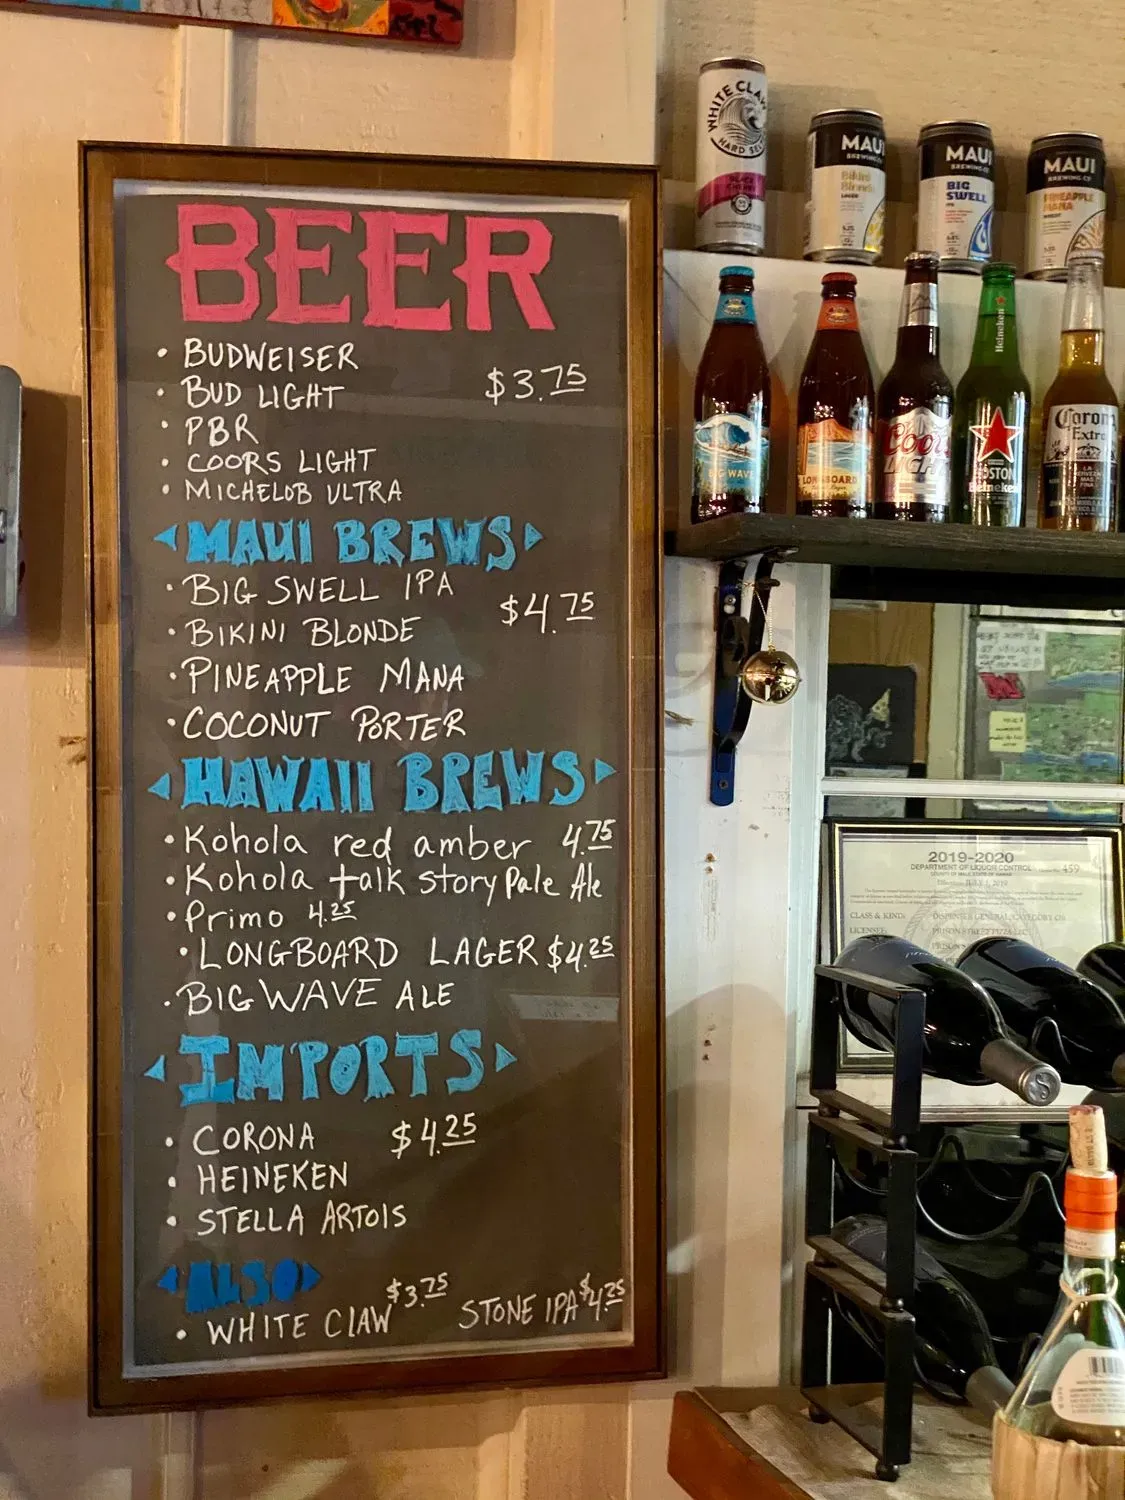 BEER
• BUDWEISER
• BUD LIGHT $3.75
• PBR
• COORS LIGHT
• MICHELOB ULTRA
MAUI BREWS
• BIG SWELL IPA
$4.75
• BIKINI BLONDE
• PINEAPPLE MANA
• COCONUT PORTER
HAWAII BREWS
• Kohola red amber 4.75
• Kohola talk story Pale Ale
• Primo 4.25
• LONGBOARD LAGER $4.25
• BIG WAVE ALE
IMPORTS
• CORONA $4.25
• HEINEKEN
• STELLA ARTOIS
ALSO
• WHITE CLAW $3.75 STONE IPA $4.25
WHITE CLAW
HARD SEL
BLACK
CHERRY
MAUI
BREWING CO
Bikini
Blonde
LAGER
MAUI
BREWING CO
BIG
SWELL
IPA
MAUI
BREWING CO
PINEAPPLE
MANA
WHEAT
BIG WAVE
LONGBOARD
Coors
LIGHT
Heineken
BOSTON
Heineken
Corona
Extra
LA
CERVEZA
MAS
FINA
2019-2020
DEPARTMENT OF LIQUOR CONTROL
COUNTY OF MAUI, STATE OF HAWAII
459
CLASS & KIND: DISPENSER GENERAL, CATEGORY
LICENSEE: PRISON STREET PIZZA LLC
PRISON